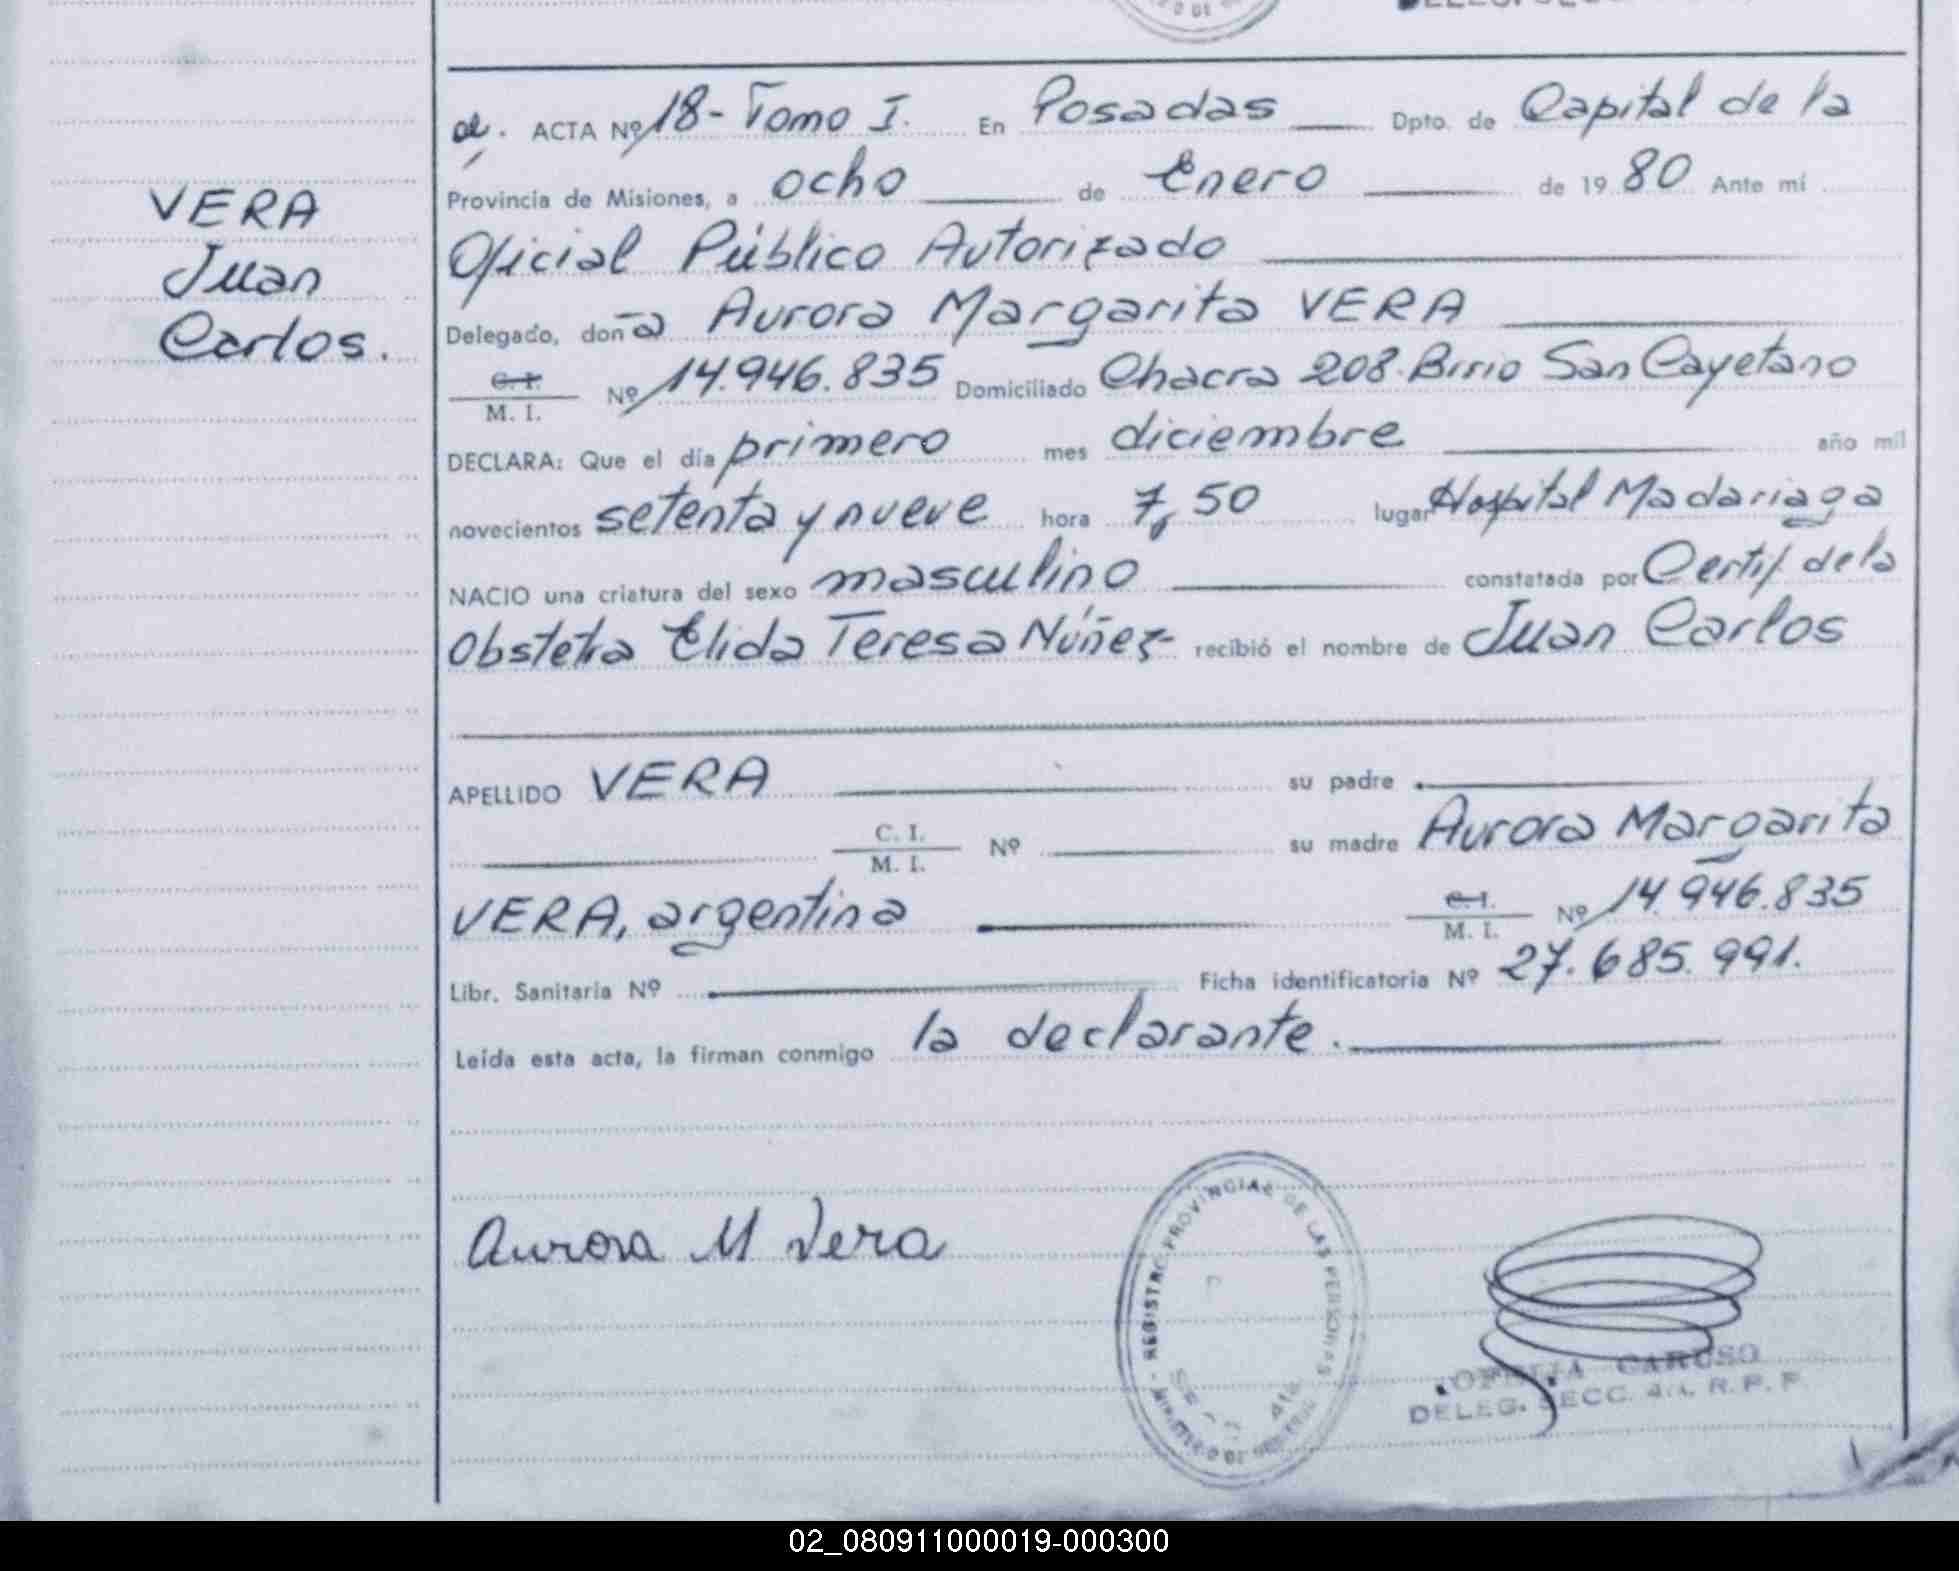 VERA
Juan
Carlos.
ACTA Nº 18 - Tomo I. En Posadas Dpto. de Capital de la
Provincia de Misiones, a ocho de Enero de 1980 Ante mí
Oficial Público Autorizado
Delegado, doña Aurora Margarita VERA
C. I. / M. I. Nº 14.946.835 Domiciliado Chacra 208. Brrio San Cayetano
DECLARA: Que el día primero mes diciembre año mil
novecientos setenta y nueve hora 7,50 lugar Hospital Madariaga
NACIO una criatura del sexo masculino constatada por Certif. de la
Obstetra Elida Teresa Núñez recibió el nombre de Juan Carlos
APELLIDO VERA su padre
C. I. / M. I. Nº su madre Aurora Margarita
VERA, argentina C. I. / M. I. Nº 14.946.835
Libr. Sanitaria Nº Ficha identificatoria Nº 27.685.991.
Leída esta acta, la firman conmigo la declarante.
Aurora M Vera
REGISTRO PROVINCIAL DE LAS PERSONAS
OFELIA CARUSO
DELEG. SECC. 4ta. R. P. P.
02_080911000019-000300